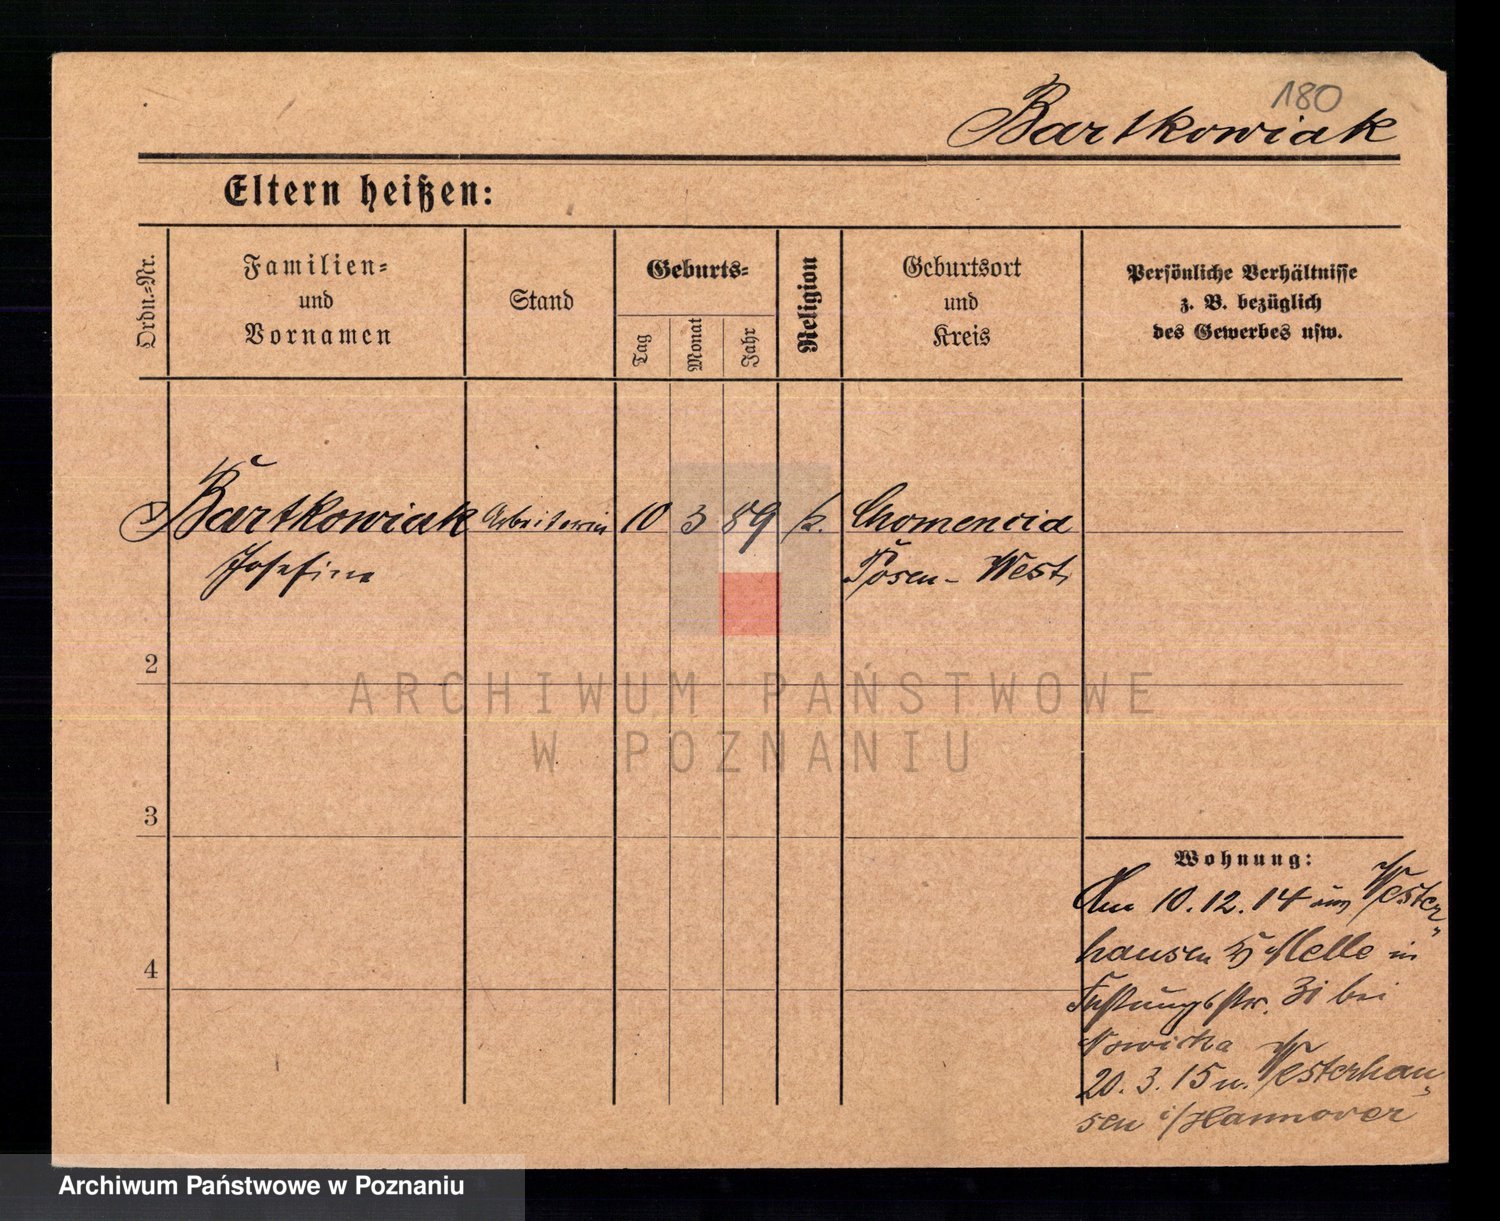 180
Bartkowiak
Eltern heißen:
Ordn.=Nr.
Familien=
und
Vornamen
Stand
Geburts=
Tag
Monat
Jahr
Religion
Geburtsort
und
Kreis
Persönliche Verhältnisse
z. B. bezüglich
des Gewerbes usw.
1 Bartkowiak Arbeiterin 10 3 89 k. Chomencia
Josefine Posen - West
2
ARCHIWUM PAŃSTWOWE
W POZNANIU
3
4
Wohnung:
Am 10.12.14 Wester-
hausen Melle in
Festungsstr. 31 bei
Nowicka
20.3.15 n. Westerhau-
sen i/Hannover
Archiwum Państwowe w Poznaniu